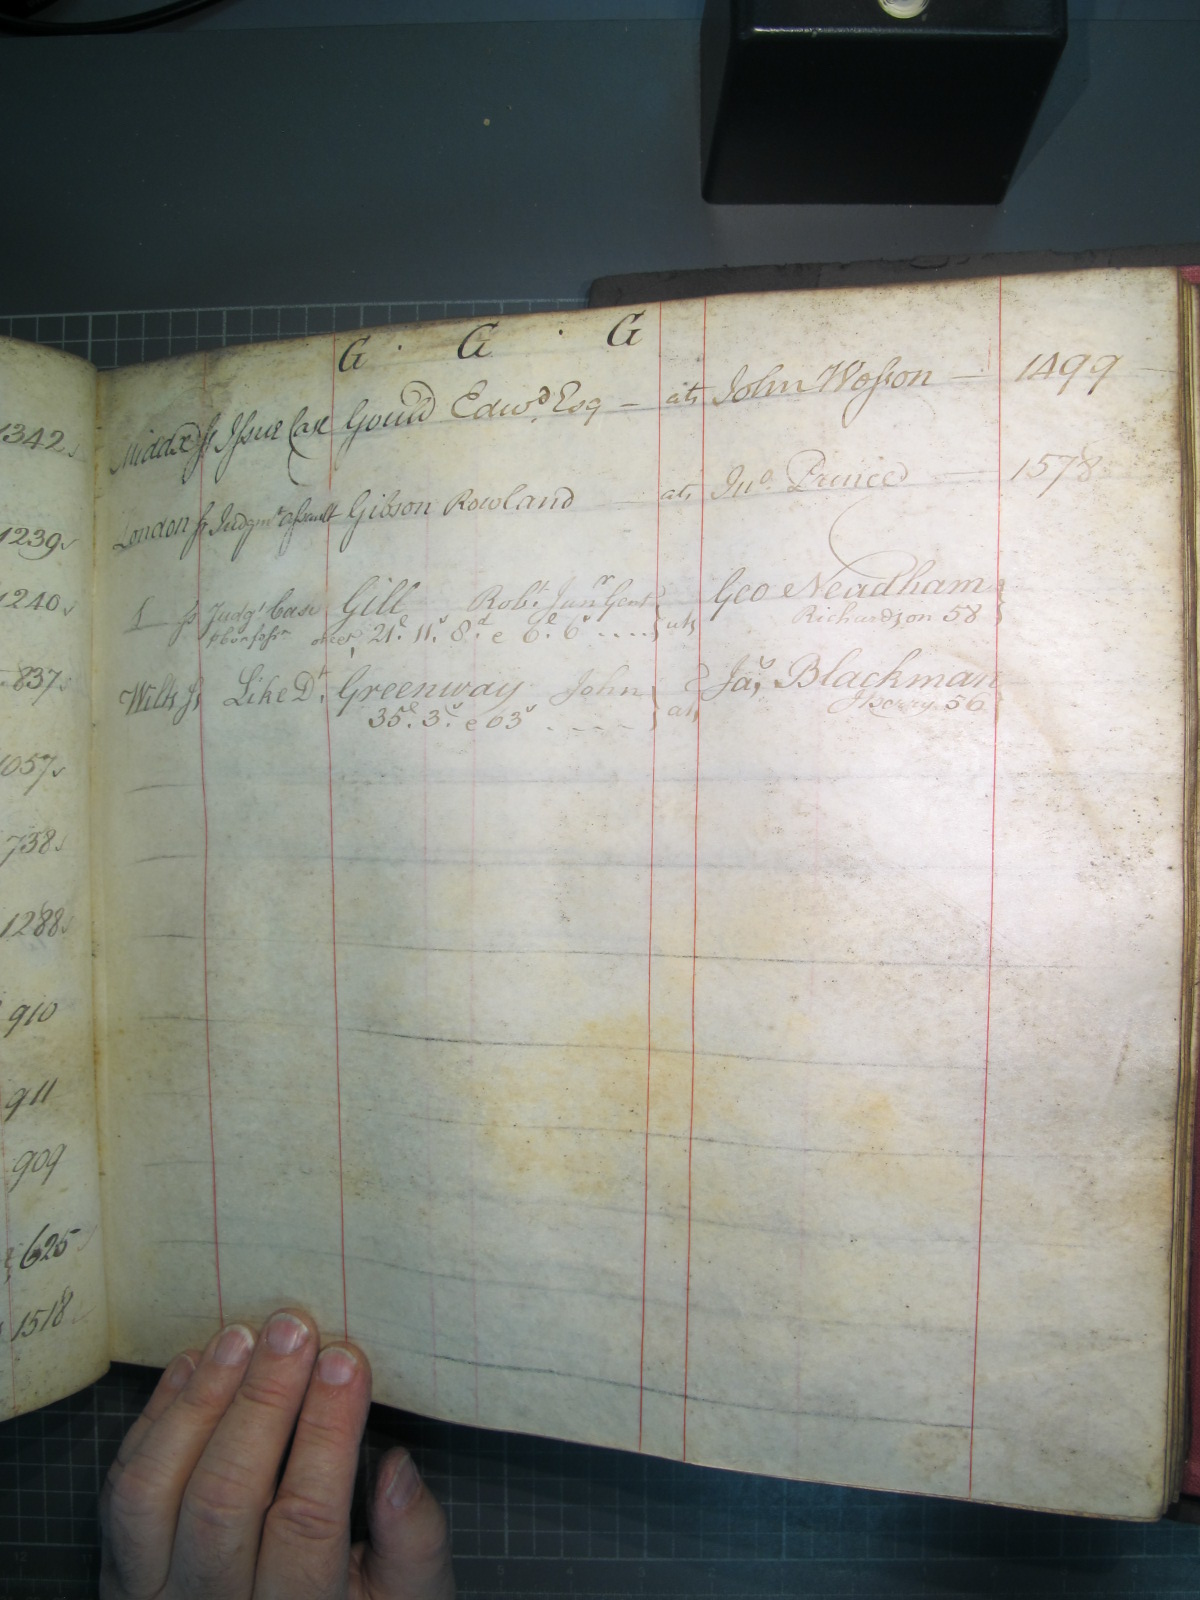 1342
1239
1240
837
1057
738
1288
910
911
909
625
1518
G . G . G
Middx ſs Iſsue Case Gould Edwd. Esq — ats John Weſson — 1499
London ſs Judgmt. aſsault Gibson Rowland — ats Jno. Prince — 1578
L ſs Judgt Case Gill Robt. Junr Gent ats Geo Neadham
21£. 11s. 8d. e 6£. 6s .... Richardson 58
Wilts ſs Like Dt. Greenway John ats Jas. Blackman
35£. 3s. e 63s - - - - Berry 56